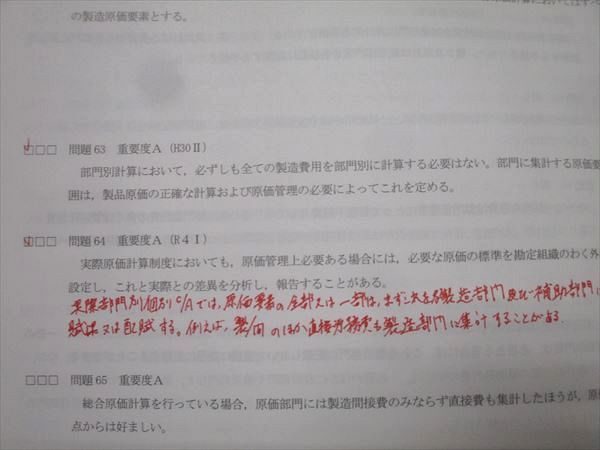 の製造原価要素とする。
□□□ 問題 63 重要度A (H30Ⅱ)
部門別計算において，必ずしも全ての製造費用を部門別に計算する必要はない。部門に集計する原価要
囲は，製品原価の正確な計算および原価管理の必要によってこれを定める。
□□□ 問題 64 重要度A (R4Ⅰ)
実際原価計算制度においても，原価管理上必要ある場合には，必要な原価の標準を勘定組織のわく外
設定し，これと実際との差異を分析し，報告することがある。
実際部門別個別C/Aでは，原価要素の全部又は一部は，まず 製造部門及び補助部門に
賦課又は配賦する。例えば，製/間のほか直接労務費も製造部門に集計することがある.
□□□ 問題 65 重要度A
総合原価計算を行っている場合，原価部門には製造間接費のみならず直接費も集計したほうが，原価
点からは好ましい。